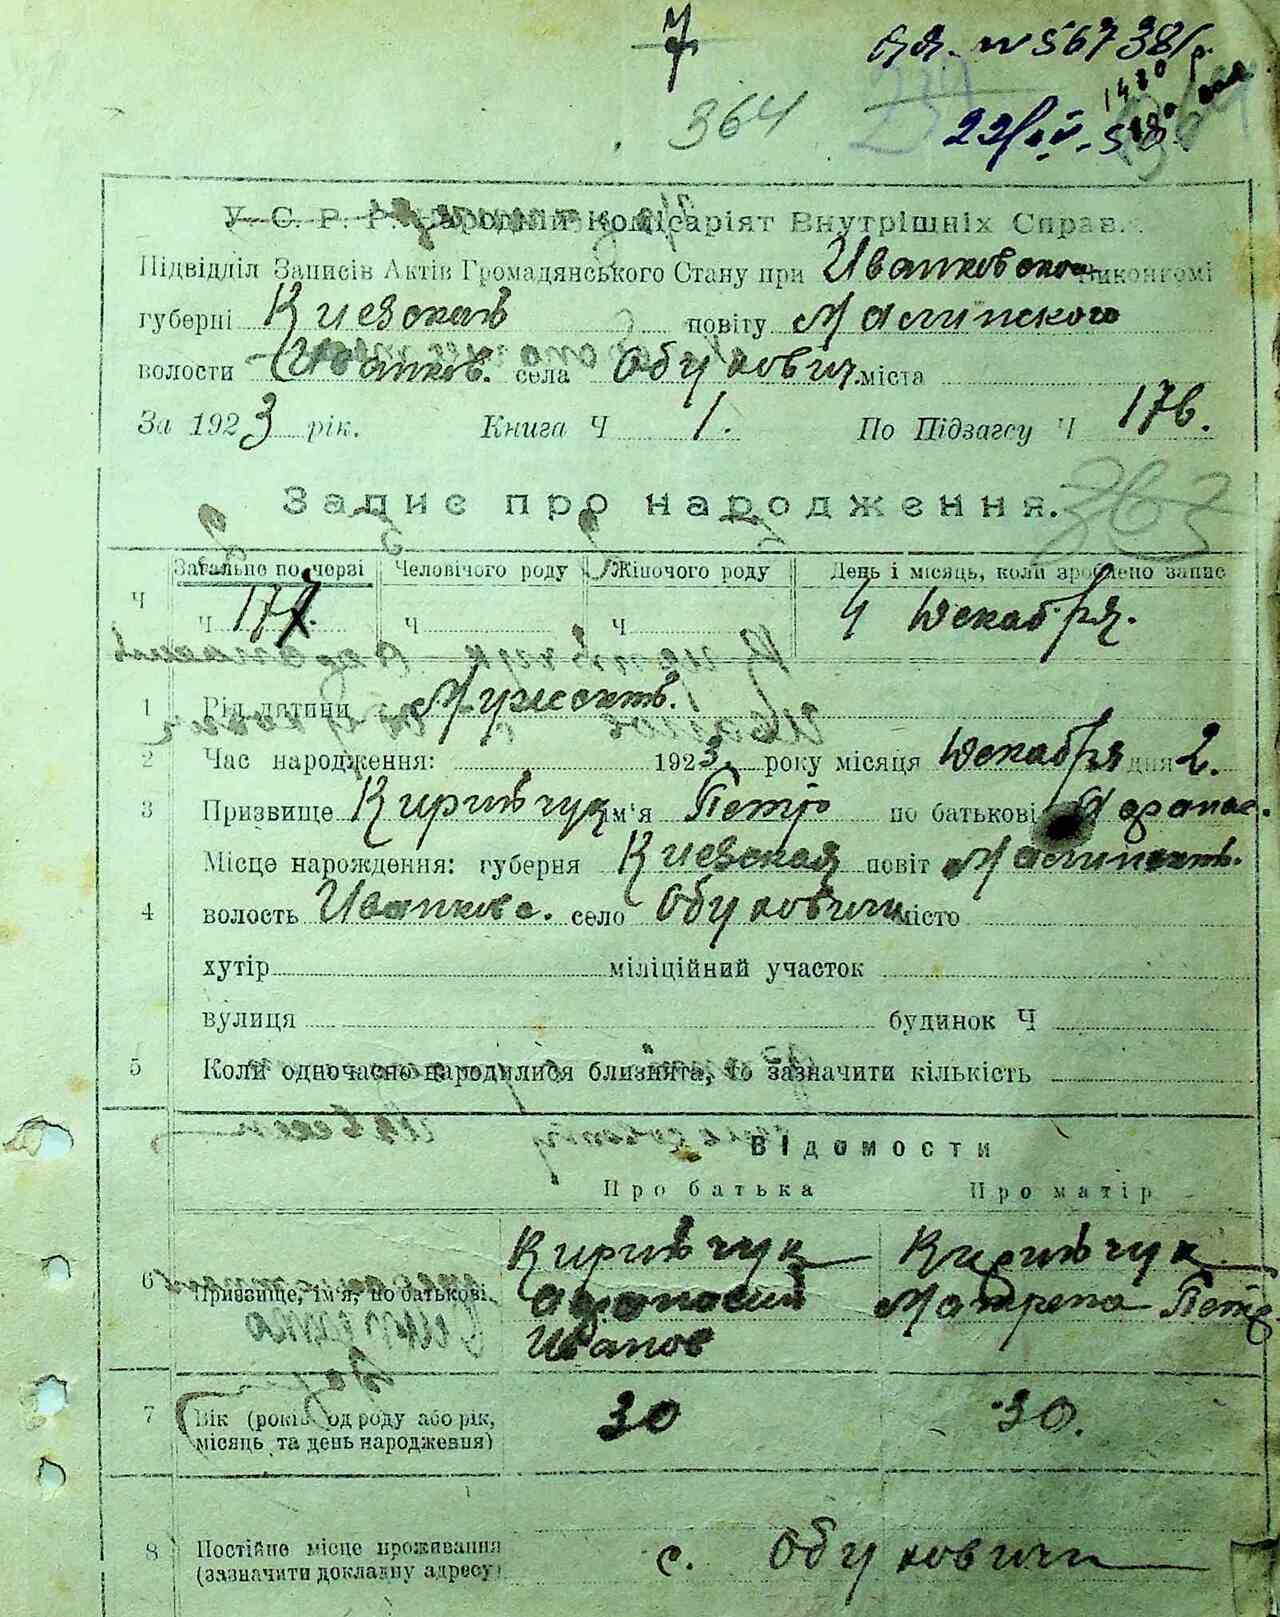 7
364
22/IV-58
У. С. Р. Р. Народній Комісаріят Внутрішніх Справ.
Підвідділ Записів Актів Громадянського Стану при Иванковском Виконкомі
губерні Киевская повіту Малинского
волости Иванков. села Обуховичи міста
За 1923 рік. Книга Ч 1. По Підзагсу Ч 176.
Запис про народження.
363
Загально по черзі Человічого роду Жіночого роду День і місяць, коли зроблено запис
Ч Ч 177. Ч Ч 4 Декабря.
1 Рід дитини Мужеск.
2 Час народження: 1923 року місяця Декабря дня 2.
3 Призвище Кирийчук ім'я Петр по батькові Афанас.
Місце нарождення: губерня Киевская повіт Малинск.
4 волость Иванков. село Обуховичи місто
хутір міліційний участок
вулиця будинок Ч
5 Коли одночасно народилися близнята, то зазначити кількість
Відомости
Про батька Про матір
Кирийчук Кирийчук
6 Призвище, ім'я, по батькові. Афанасий Матрена Петр.
Иванов
7 Вік (років од роду або рік, 30 30.
місяць та день народження)
8 Постійне місце проживання с. Обуховичи
(зазначити докладну адресу)